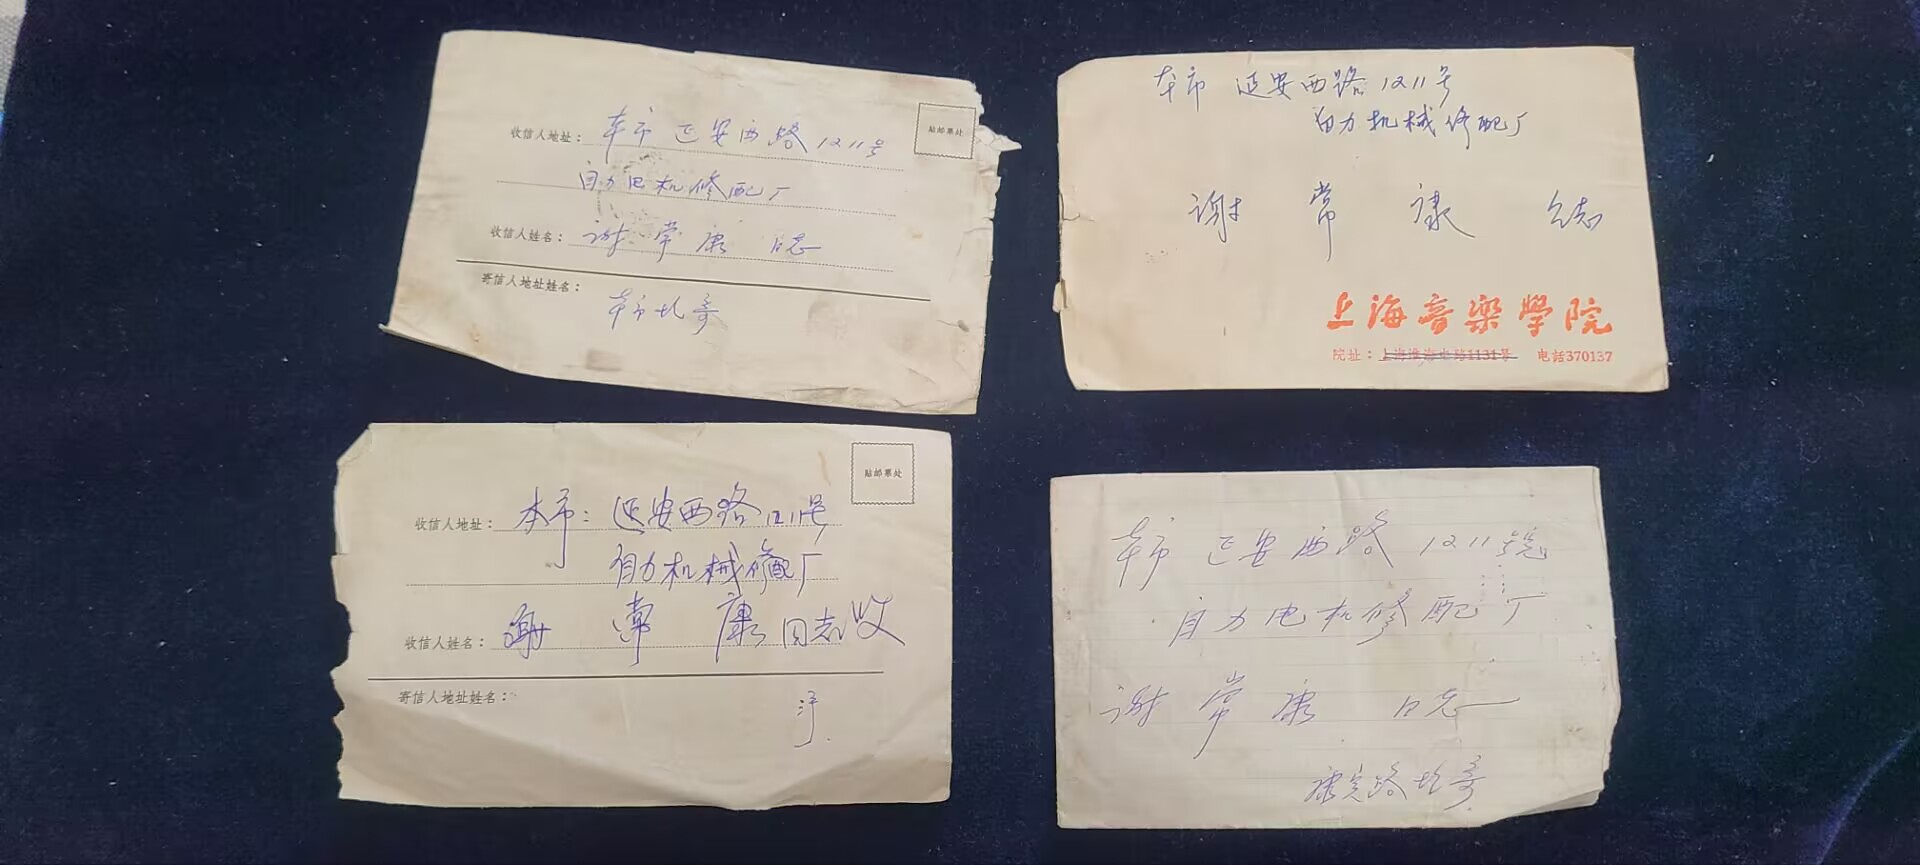 贴邮票处
收信人地址: 本市 延安西路1211号
自力电机修配厂
收信人姓名: 谢常康 同志
寄信人地址姓名:
本市
本市 延安西路1211号
自力机械修配厂
谢 常 康 同志
上海音樂學院
院址: 上海淮海中路1131号 电話370137
贴邮票处
收信人地址: 本市: 延安西路1211号
自力机械修配厂
收信人姓名: 谢 常 康 同志收
寄信人地址姓名:
本市 延安西路 1211号
自力电机修配厂
谢 常 康 同志
康定路